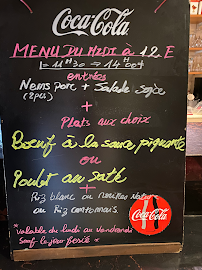 Coca-Cola
MENU DU MIDI à 12 E
11H30 → 14H00
entrées
Nems porc + Salade Soja
(2pcs)
+
Plats aux choix
Boeuf à la sauce piquante
ou
Poulet au saté
+
Riz blanc ou nouilles Nature
ou Riz cantonnais
Coca-Cola
*valable du lundi au vendredi
Sauf le jour férié*